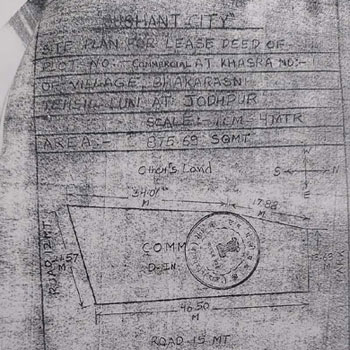 SUSHANT CITY
SITE PLAN FOR LEASE DEED OF
PLOT NO:- COMMERCIAL AT KHASRA NO:-
OF VILLAGE BHAKARASNI
TEHSIL LUNI AT JODHPUR
SCALE:- 1CM = 4MTR
AREA:- 875.69 SQMT
Other's Land
S N
34.01 M
17.88 M
ROAD 12 MT
M
COMM
40.50
M
ROAD 15 MT